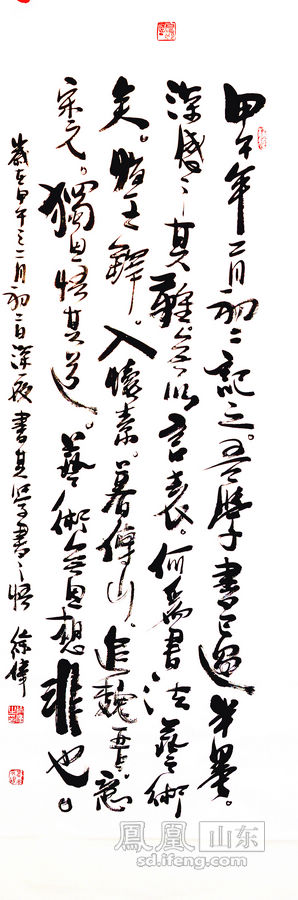 甲午年二月初二記之。吾學書已過
深感之其難無以言表。何為書法藝術
矣。王鐸。入懷素。慕傅山。追魏晉。意
宋元。獨思悟其道。藝術無思想非也。
歲在甲午之二月初二日深夜書其學書之悟 徐偉
鳳凰 山东
sd.ifeng.com